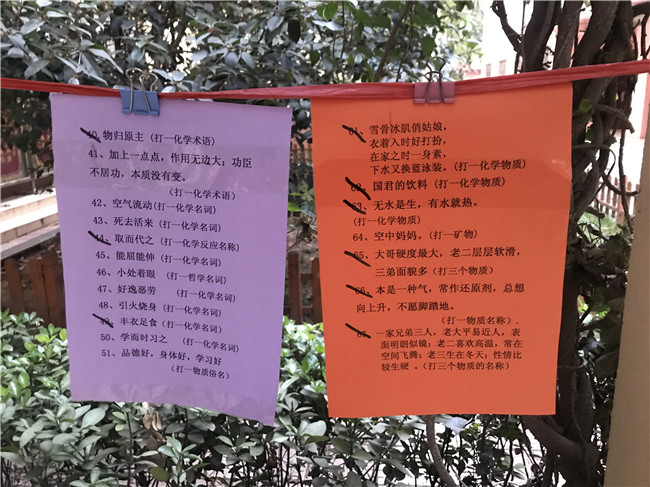 40、物归原主（打一化学术语）
41、加上一点点，作用无边大；功臣
不居功，本质没有变。
（打一化学术语）
42、空气流动（打一化学名词）
43、死去活来（打一化学名词）
44、取而代之（打一化学反应名称）
45、能屈能伸（打一化学名词）
46、小处着眼（打一哲学名词）
47、好逸恶劳（打一化学名词）
48、引火烧身（打一化学名词）
49、丰衣足食（打一化学名词）
50、学而时习之（打一化学名词）
51、品德好，身体好，学习好
（打一物质俗名）
61、雪骨冰肌俏姑娘，
衣着入时好打扮，
在家之时一身素，
下水又换蓝泳装。（打一化学物质）
62、国君的饮料（打一化学物质）
63、无水是生，有水就热。
（打一化学物质）
64、空中妈妈。（打一矿物）
65、大哥硬度最大，老二层层软滑，
三弟面貌多（打三个物质）
66、本是一种气，常作还原剂，总想
向上升，不愿脚踏地。
（打一物质名称）.
67、一家兄弟三人，老大平易近人，表
面明朗似镜；老二喜欢高温，常在
空间飞腾；老三生在冬天；性情比
较生硬 。（打三个物质的名称）